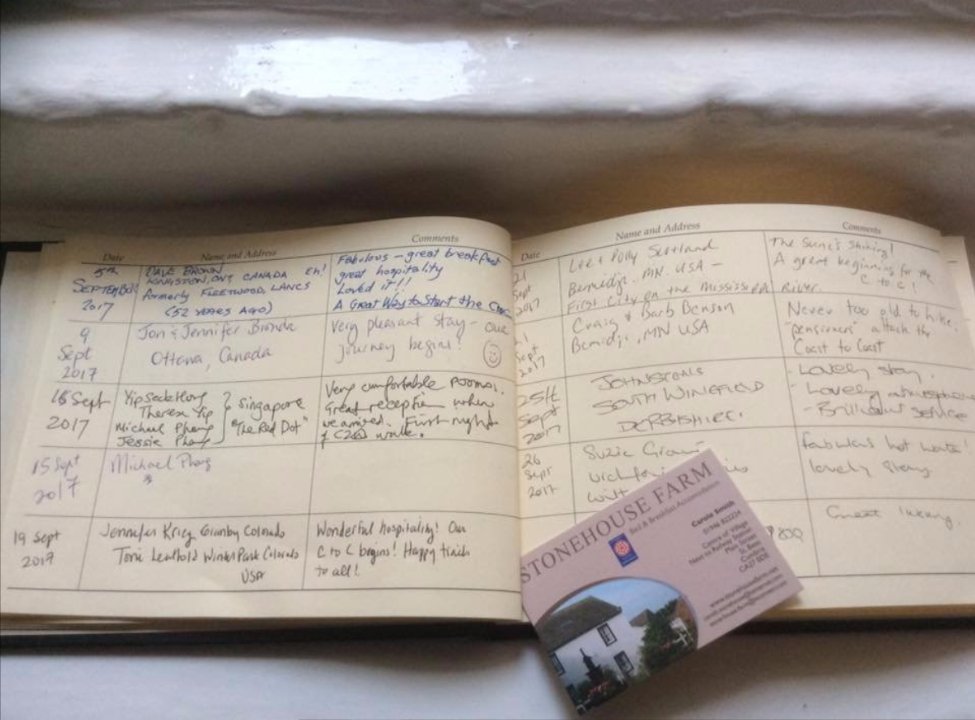 Date Name and Address Comments
5th
SEPTEMBER
2017
DAVE BROWN
KINGSTON, ONT, CANADA Eh!
formerly FLEETWOOD, LANCS
(52 YEARS AGO)
Fabulous - great breakfast
great hospitality
Loved it!!
A Great Way to Start the
9
Sept
2017
Jon & Jennifer
Ottawa, Canada
Very pleasant stay - our
journey begins!
Sept
2017
Theresa Yip
Michael
Jessie
Singapore
"The Red Dot"
Very comfortable rooms.
Great reception when
we arrived. First night
of C2C walk.
15 Sept
2017
Michael
19 Sept
2017
Jennifer Granby Colorado
Winter Park Colorado
USA
Wonderful hospitality! Our
C to C begins! Happy finish
to all!
Date Name and Address Comments
21
Sept
2017
Polly
Bemidji, MN. USA -
First City on the Mississippi River.
The Sun's Shining!
A great beginning for the
C to C!
Sept
2017
Craig & Barb Benson
Bemidji, MN USA
Never too old to hike.
"pensioners" attack the
Coast to Coast
25th
Sept
2017
SOUTH WINGFIELD
DERBYSHIRE.
- Lovely stay.
- Lovely atmosphere
- Brilliant service
26
Sept
2017
Suzie
Fabulous hot water!
lovely
Great
STONEHOUSE FARM
Bed & Breakfast Accommodation
Carole Smith
01946 822224
Centre of Village
Next to Railway Station
Main Street
St. Bees
Cumbria
CA27 0DE
www.stonehousefarm.net